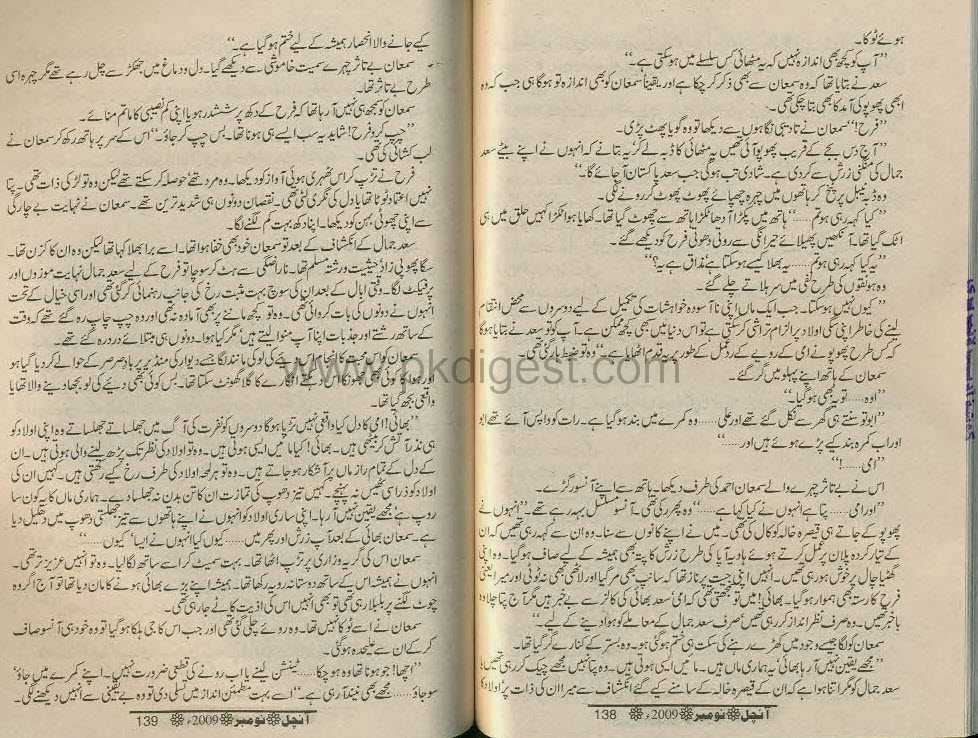 ہوئے ٹوکا۔
”آپ کو کچھ بھی اندازہ نہیں کہ یہ مٹھائی کس سلسلے میں ہو سکتی ہے۔“
سعد نے بتایا تھا کہ وہ سمعان سے بھی ذکر کر چکا ہے اور یقیناً سمعان کو بھی اندازہ تو ہو گا ہی جب کہ وہ
ابھی پھوپو کی آمد کا بھی بتا چکی تھی۔
”فرح!“ سمعان نے تادیبی نگاہوں سے دیکھا تو وہ گویا پھٹ پڑی۔
”آج دس بجے کے قریب پھوپو آئی تھیں یہ مٹھائی کا ڈبہ لے کر‘ یہ بتانے کہ انہوں نے اپنے بیٹے سعد
جمال کی منگنی زرش سے کر دی ہے۔ شادی تب ہو گی جب سعد پاکستان آ جائے گا۔“
وہ ڈبہ ٹیبل پر پٹخ کر ہاتھوں میں چہرہ چھپائے پھوٹ پھوٹ کر رونے لگی۔
”کیا کہہ رہی ہو تم......“ ہاتھ میں پکڑا آدھا ٹکڑا ہاتھ سے چھوٹ گیا تھا۔ کھایا ہوا ٹکڑا کہیں حلق میں ہی
اٹک گیا تھا۔ آنکھیں پھیلائے حیرانگی سے روتی دھوتی فرح کو دیکھے گئے۔
”یہ کیا کہہ رہی ہو تم...... یہ بھلا کیسے ہو سکتا ہے‘ مذاق ہے یہ؟“
وہ ہونقوں کی طرح نفی میں سر ہلاتے چلے گئے۔
”کیوں نہیں ہو سکتا۔ جب ایک ماں اپنی ناآسودہ خواہشات کی تکمیل کے لیے دوسروں سے محض انتقام
لینے کی خاطر اپنی سگی اولاد پر الزام تراشی کر سکتی ہے تو اس دنیا میں بھی کچھ ممکن ہے۔ آپ کو تو سعد نے بتایا ہو گا
کہ کس طرح پھوپو نے امی کے رویے کے ردعمل کے طور پر یہ قدم اٹھایا ہے۔“ وہ تو ضبط ہار گئی تھی۔
سمعان کے ہاتھ اپنے پہلو میں گر گئے۔
”اوہ...... تو یہ بھی ہو گیا۔“
”ابو تو سنتے ہی گھر سے نکل گئے تھے اور علی...... وہ کمرے میں بند ہو گیا ہے۔ رات کو واپس آئے تھے ابو
اور اب کمرہ بند کیے پڑے ہوئے ہیں اور......“
”امی......!“
اس نے بے تاثر چہرے والے سمعان احمد کی طرف دیکھا۔ ہاتھ سے اپنے آنسو رگڑے۔
”اور امی...... پتا ہے انہوں نے کیا کہا ہے......“ وہ پھر رکی تھی۔ آنسو مسلسل بہہ رہے تھے۔ ”انہوں نے
پھوپو کے جاتے ہی قیصرہ خالہ کو کال کی تھی۔ میں نے اپنے کانوں سے سنا۔ وہ ان سے کہہ رہی تھیں کہ ان
کے تیار کردہ پلان پر عمل کرتے ہوئے ہادیہ آپا کی طرح زرش کا پتہ بھی ہمیشہ کے لیے صاف ہو گیا۔ وہ اپنی
گھٹیا چال پر خوش ہو رہی تھیں۔ انہیں اپنی جیت پر ناز تھا کہ سانپ بھی مر گیا اور لاٹھی بھی نہ ٹوٹی اور میرا یعنی
فرح کا رستہ بھی ہموار ہو گیا۔ بھائی! میں تو سمجھتی تھی کہ امی‘ سعد بھائی کی کانر سے بے خبر ہیں مگر آج پتا چلا وہ
باخبر تھیں۔ وہ صرف نظر انداز کر رہی تھیں‘ صرف سعد جمال کے معاملے کو ہوا دینے کے لیے۔“
سمعان کو لگا جیسے وجود میں کھڑے رہنے کی سکت ہی ختم ہو گئی ہو۔ وہ بستر کے کنارے گر گیا تھا۔
”مجھے یقین نہیں آ رہا بھائی‘ یہ ہماری ماں ہیں۔ مائیں ایسی ہوتی ہیں۔ وہ پتا نہیں مجھے چیک کر رہی تھیں‘
سعد جمال کو مگر اتنا ہوا ہے کہ ان کے قیصرہ خالہ کے سامنے کیے گئے انکشاف سے میرا ان کی ذات پر ’اولاد کا
آنچل نومبر 2009ء 138
کیے جانے والا انحصار ہمیشہ کے لیے ختم ہو گیا ہے۔“
سمعان بے تاثر چہرے سمیت خاموشی سے دیکھے گیا۔ دل و دماغ میں جھکڑ سے چل رہے تھے مگر چہرہ اسی
طرح بے تاثر تھا۔
سمعان کو سمجھ ہی نہیں آ رہا تھا کہ فرح کے دکھ پر ششدر ہو یا اپنی کم نصیبی کا ماتم منائے۔
”چپ کرو فرح! شاید یہ سب ایسے ہی ہونا تھا۔ بس چپ کر جاؤ۔“ اس کے سر پر ہاتھ رکھ کر سمعان نے
لب کشائی کی تھی۔
فرح نے تڑپ کر اس ٹھہری ہوئی آواز کو دیکھا۔ وہ مرد تھے‘ حوصلہ کر سکتے تھے لیکن وہ تو لڑکی ذات تھی۔ پتا
نہیں اعتماد ٹوٹا تھا یا دل کی نگری لٹی تھی۔ نقصان دونوں ہی شدید ترین تھے۔ سمعان نے نہایت بے چارگی
سے اپنی چھوٹی بہن کو دیکھا۔ اپنا دکھ بہت کم لگنے لگا۔
سعد جمال کے انکشاف کے بعد تو سمعان خود بھی خفا ہوا تھا۔ اسے برا بھلا کہا تھا لیکن وہ ان کا کزن تھا۔
سگا پھوپی زاد‘ حیثیت و رشتہ مسلم تھا۔ ناراضگی سے ہٹ کر سوچا تو فرح کے لیے سعد جمال نہایت موزوں اور
پرفیکٹ لگا۔ وقتی ابال کے بعد ان کی سوچ بہت مثبت رخ کی جانب رہنمائی کر گئی تھی اور اسی خیال کے تحت
انہوں نے دونوں کی بات کروائی تھی۔ وہ تو کچھ ماننے پر بھی آمادہ نہ تھی اور وہ چپ چاپ رہ گئے تھے کہ وقت
کے ساتھ رشتے اور جذبات اپنا آپ منوا لیتے ہیں‘ مگر کیا ہوا۔ دونوں ہی مبتلائے درد رہ گئے تھے۔
سمعان کو اس محبت کا انجام اس دیئے کی لو کی مانند لگا جسے دیوار کی منڈیر پر باد صرصر کے حوالے کر دیا گیا ہو
اور ہوا کا کوئی بھی جھونکا اس دہکتے انگارے کا گلا گھونٹ سکتا تھا۔ بس کوئی بھی دیئے کی لو بجھا دینے والا تھا یا
واقعی بجھ گیا تھا۔
”بھائی! امی کا دل کیا واقعی نہیں تڑپا ہو گا دوسروں کو نفرت کی آگ میں جھلساتے جھلساتے وہ اپنی اولاد کو
ہی نذر آتش کر بیٹھی ہیں۔ بھائی! کیا مائیں ایسی ہوتی ہیں۔ وہ تو اولاد کی نظر تک پڑھ لینے والی ہوتی ہیں۔ ان
کے دل کے تمام راز ماں پر آشکار ہو جاتے ہیں۔ وہ تو ہر لمحہ اولاد کی طرف رخ کیے رکھتی ہیں۔ کہیں ان کی
اولاد کو ذرا سی ٹھیس نہ پہنچے۔ کہیں تیز دھوپ کی تمازت ان کا تن بدن نہ جھلسا دے۔ ہماری ماں کا یہ کون سا
روپ ہے‘ مجھے یقین نہیں آ رہا۔ اپنی ساری اولاد کو انہوں نے اپنے ہاتھوں سے تیز جھلستی دھوپ میں دھکیل دیا
ہے۔ سمعان بھائی کے بعد آپ‘ زرش اور پھر میں...... کیوں کیا انہوں نے ایسا‘ کیوں......“
سمعان اس کی گریہ و زاری پر تڑپ اٹھا تھا۔ بہت سمیٹ کر اسے ساتھ لگا لیا۔ وہ تو انہیں عزیز تر تھی۔
انہوں نے ہمیشہ اس کے ساتھ دوستانہ رویہ رکھا تھا۔ ہمیشہ اپنے بڑے بھائی ہونے کا مان دیا تھا تو آج اگر وہ
چوٹ لگنے پر بلبلا رہی تھی تو بھی انہیں اس کی اذیت کاٹے جا رہی تھی۔
سمعان نے اسے ٹوکا نہیں تھا۔ وہ روئے چلی گئی تھی اور جب اس کا جی ہلکا ہو گیا تو وہ خود ہی آنسو صاف
کر کے ان سے علیحدہ ہو گئی۔
”اچھا! جو ہونا تھا وہ ہو چکا...... ٹینشن لینے یا اب رونے کی قطعی ضرورت نہیں۔ اپنے کمرے میں جاؤ‘
سو جاؤ...... مجھے بھی نیند آ رہی ہے۔“ اسے بہت مطمئن انداز میں تسلی دی تو وہ بے یقینی سے انہیں دیکھنے لگی۔
آنچل نومبر 2009ء 139
www.pkdigest.com